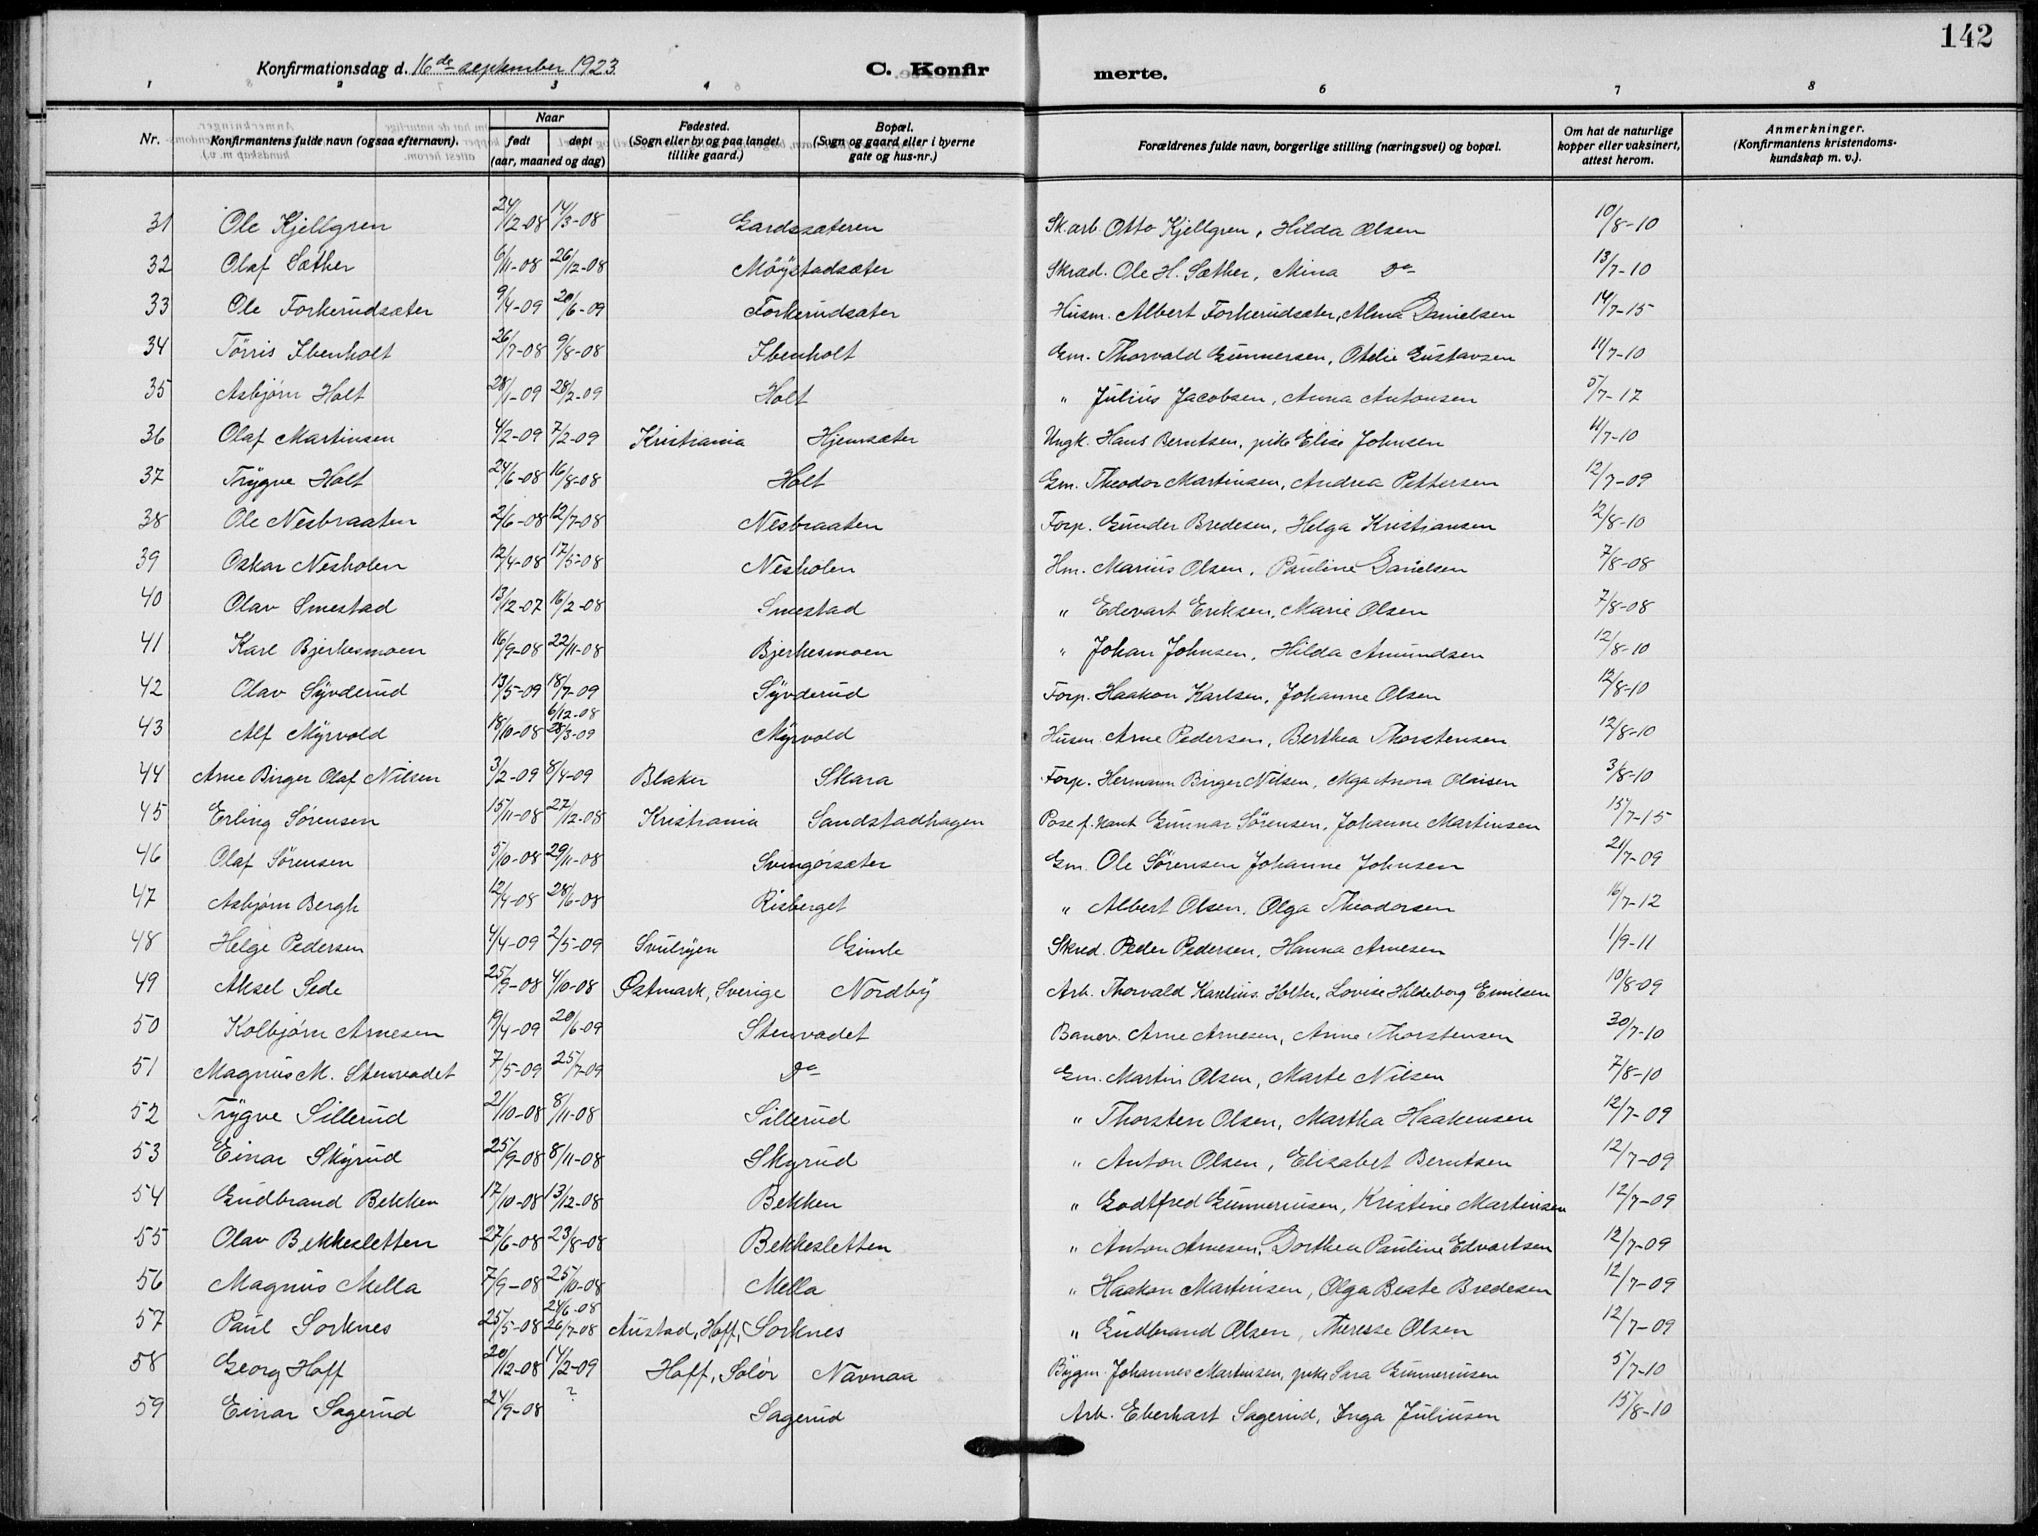 142
Konfirmationsdag d. 16de september 1923. C. Konfir merte.
1 2 3 4 6 7 8
Nr. Konfirmantens fulde navn (ogsaa efternavn). Naar født døpt (aar, maaned og dag) Fødested. (Sogn eller by og paa landet tillike gaard.) Bopæl. (Sogn og gaard eller i byerne gate og hus-nr.) Forældrenes fulde navn, borgerlige stilling (næringsvei) og bopæl. Om hat de naturlige kopper eller vaksinert, attest herom. Anmerkninger. (Konfirmantens kristendoms-kundskap m. v.).
31 Ole Kjellgren 24/12-08 14/3-08 Gardssæteren Sk.arb. Otto Kjellgren, Hilda Olsen 10/8-10
32 Olaf Sæther 6/11-08 26/12-08 Møystadsæter Skræd. Ole H. Sæther, Mina do 13/7-10
33 Ole Forkerudsæter 9/4-09 20/6-09 Forkerudsæter Husm. Albert Forkerudsæter, Alma Danielsen 14/7-15
34 Tørris Ibenholt 26/7-08 9/8-08 Ibenholt Gm. Thorvald Gunnersen, Otelie Gustavsen 11/7-10
35 Asbjørn Holt 28/1-09 28/2-09 Holt " Julius Jacobsen, Anna Antonsen 5/7-17
36 Olaf Martinsen 4/2-09 7/2-09 Kristiania Hjemsæter Ungk. Hans Berntsen, pike Elise Johnsen 11/7-10
37 Trygve Holt 24/6-08 16/8-08 Holt Gm. Theodor Martinsen, Andrea Pettersen 12/7-09
38 Ole Nesbraaten 2/6-08 12/7-08 Nesbraaten Forp. Gunder Bredesen, Helga Kristiansen 12/8-10
39 Oskar Nesholen 12/4-08 17/5-08 Nesholen Hm. Marius Olsen, Pauline Danielsen 7/8-08
40 Olav Smestad 13/12-07 16/2-08 Smestad " Edevart Eriksen, Marie Olsen 7/8-08
41 Karl Bjerkesmoen 16/9-08 22/11-08 Bjerkesmoen " Johan Johnsen, Hilda Amundsen 12/8-10
42 Olav Syvderud 13/5-09 18/7-09 Syvderud Forp. Haakon Karlsen, Johanne Olsen 12/8-10
43 Alf Myrvold 18/10-08 6/12-08 28/3-09 Myrvold Husm. Arne Pedersen, Berthea Thorstensen 12/8-10
44 Arne Birger Olaf Nilsen 3/2-09 8/4-09 Blaker Skara Forp. Hermann Birger Nilsen, Olaisen 3/8-10
45 Erling Sørensen 15/11-08 27/12-08 Kristiania Sandstadhagen Pose f. Gunnar Sørensen, Johanne Martinsen 15/7-15
46 Olaf Sørensen 5/10-08 29/11-08 Svingørsæter Gm. Ole Sørensen Johanne Johnsen 21/7-09
47 Asbjørn Bergh 12/4-08 28/6-08 Risberget " Albert Olsen, Olga Theodorsen 16/7-12
48 Helge Pedersen 4/4-09 2/5-09 Svulrýen Gimle Skred. Peder Pedersen, Hanna Arnesen 1/9-11
49 Aksel Sede 25/9-08 4/10-08 Østmark, Sverige Nordby Arb. Thorvald Karelius Holter, Lovise Hildeborg Emilsen 10/8-09
50 Kolbjørn Arnesen 19/4-09 20/6-09 Stenvadet Banev. Arne Arnesen, Anne Thorstensen 30/7-10
51 Magnus M. Stenvadet 7/5-09 25/7-09 do Gm. Martin Olsen, Marte Nilsen 7/8-10
52 Trygve Sillerud 21/10-08 8/11-08 Sillerud " Thorsten Olsen, Martha Haakensen 12/7-09
53 Einar Skyrud 25/9-08 8/11-08 Skyrud " Anton Olsen, Elisabet Berntsen 12/7-09
54 Gudbrand Bekken 17/10-08 13/12-08 Bekken " Godtfred Gunneriusen, Kristine Martinsen 12/7-09
55 Olav Bekkesletten 27/6-08 23/8-08 Bekkesletten " Anton Arnesen, Dorthea Pauline Edvartsen 12/7-09
56 Magnus Mella 7/9-08 25/10-08 Mella " Haakon Martinsen, Olga Beate Bredesen 12/7-09
57 Paul Sorknes 25/5-08 24/6-08 26/7-08 Austad, Hoff, Sorknes " Gudbrand Olsen, Therese Olsen 12/7-09
58 Georg Hoff 20/12-08 14/2-09 Hoff, Solør Navnaa Bygm. Johannes Martinsen, pike Sara Gunneriusen 5/7-10
59 Einar Sagerud 24/9-08 ? Sagerud Arb. Eberhart Sagerud, Inga Juliusen 15/8-10